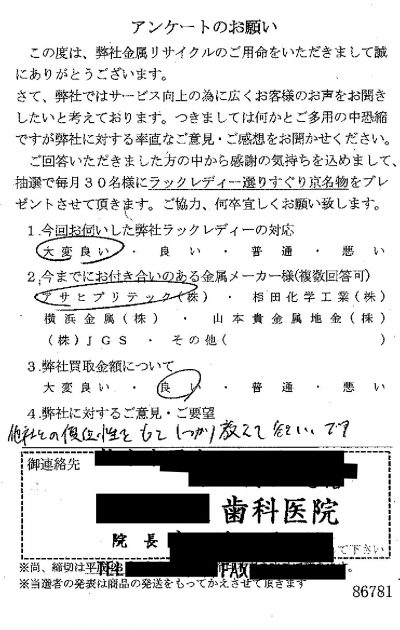 アンケートのお願い
この度は、弊社金属リサイクルのご用命をいただきまして誠
にありがとうございます。
さて、弊社ではサービス向上の為に広くお客様のお声をお聞き
したいと考えております。つきましては何かとご多用の中恐縮
ですが弊社に対する率直なご意見・ご感想をお聞かせください。
ご回答いただきました方の中から感謝の気持ちを込めまして、
抽選で毎月30名様にラックレディー選りすぐり京名物をプレ
ゼントさせて頂きます。ご協力、何卒宜しくお願い致します。
1.今回お伺いした弊社ラックレディーの対応
大変良い ・ 良い ・ 普通 ・ 悪い
2.今までにお付き合いのある金属メーカー様(複数回答可)
アサヒプリテック(株) ・ 杉田化学工業(株)
横浜金属(株) ・ 山本貴金属地金(株)
(株)JGS ・ その他( )
3.弊社買取金額について
大変良い ・ 良い ・ 普通 ・ 悪い
4.弊社に対するご意見・ご要望
他社との優位性をもっとしっかり教えて
です
御連絡先
歯科医院
院長
て下さい
TEL FAX
※尚、締切は平成
※当選者の発表は商品の発送をもってかえさせて頂きます
86781